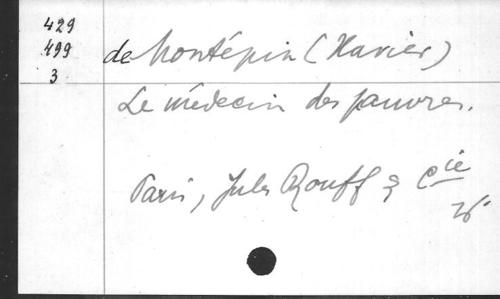 429
499
3
de Montépin (Xavier)
Le médecin des pauvres.
Paris, Jules Rouff & Cie